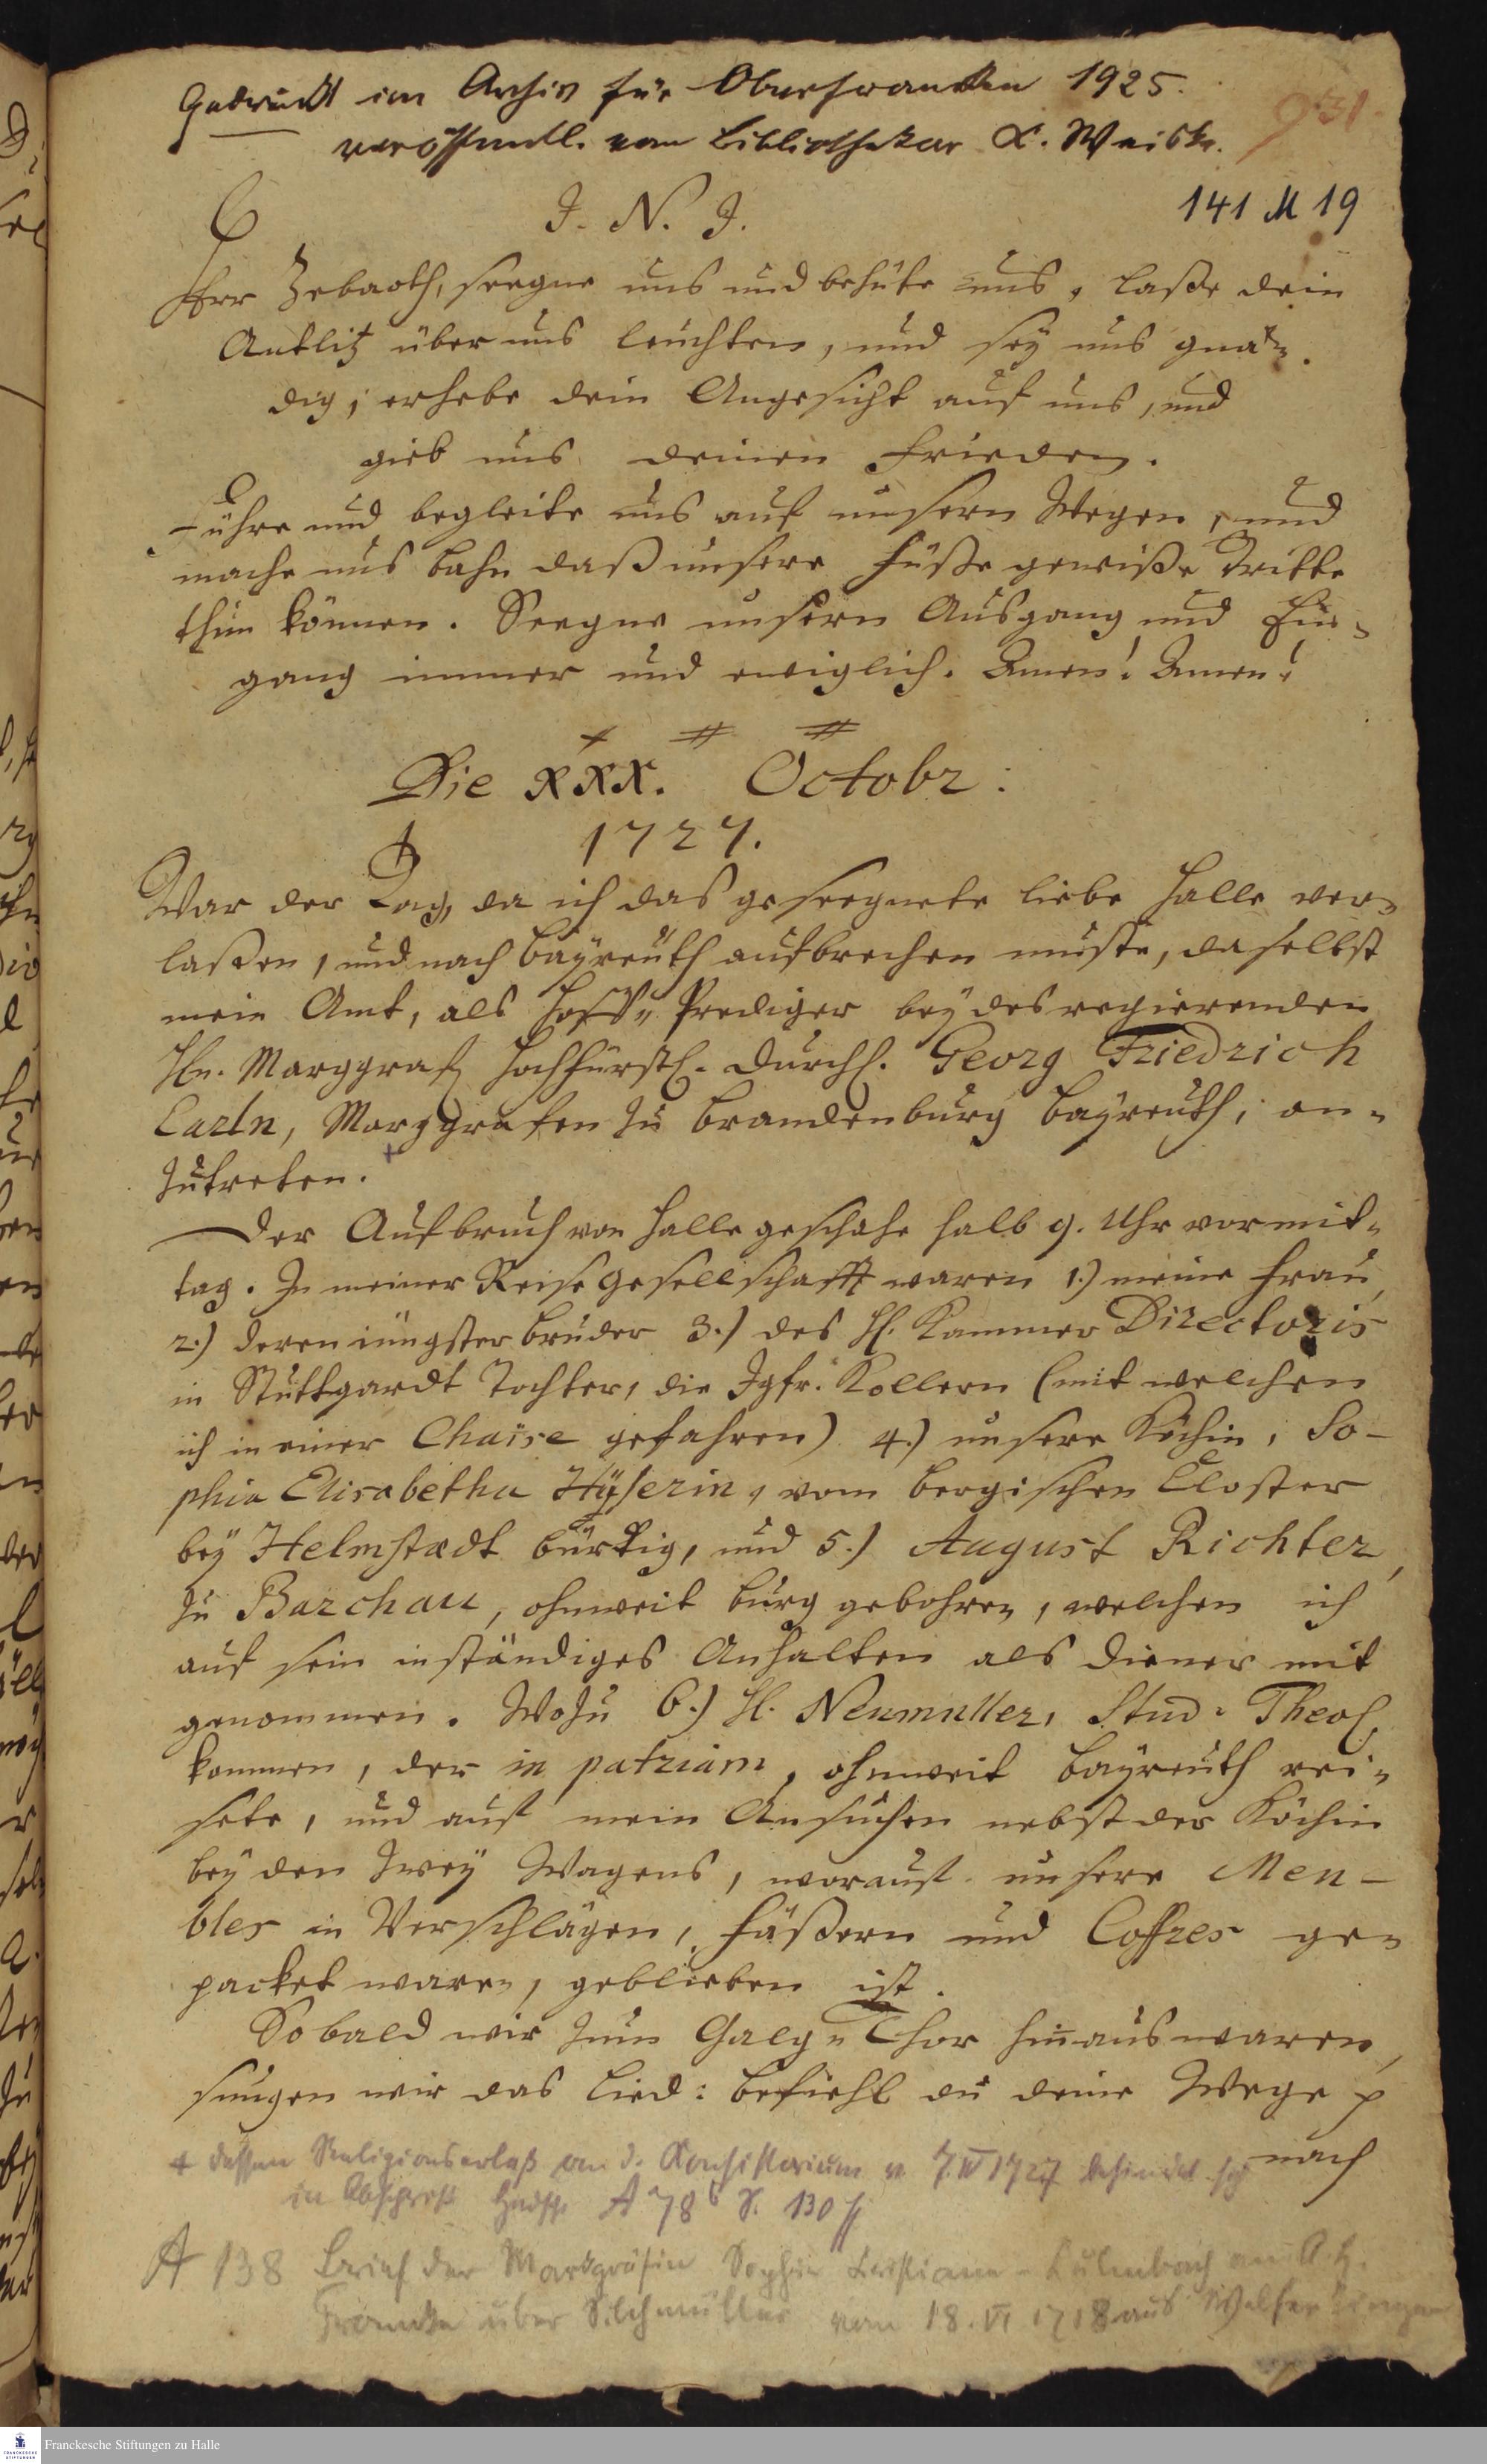 Gedruckt im Archiv für Oberfranken 1925.
veröffentl. vom Bibliothekar K. Weiske.
931
141 M 19
J. N. J.
Herr Zebaoth, seegne uns und behüte uns, laße dein
Antlitz über uns leuchten, und sey uns gnä-
dig; erhebe dein Angesicht auf uns, und
gieb uns deinen Frieden.
Führe und begleite uns auf unsern Wegen, und
mache uns bahn daß unsere Füße gewiße Tritte
thun können. Seegne unsern Ausgang und Ein-
gang immer und ewiglich. Amen! Amen!
Die XXX. Octobr:
1727.
War der Tag, da ich das geseegnete liebe Halle ver-
laßen, und nach Bayreuth aufbrechen muste, daselbst
mein Amt, als Hoff-Prediger bey des regierenden
Hn. Marggraf Hochfürstl. Durchl. Georg Friedrich
Carln, Marggrafen zu Brandenburg Bayreuth, an-
zutreten. +
Der Aufbruch von Halle geschahe halb 9. Uhr vormit-
tag. In meiner Reise Gesellschafft waren 1.) meine Frau,
2.) deren iüngster Bruder 3.) des H. Kammer Directoris
in Stuttgardt Tochter, die Jgfr. Kollern (mit welchen
ich in einer Chaise gefahren) 4.) unsere Köchin, So-
phia Elisabetha Hyserin, vom bergischen Closter
bey Helmstædt bürtig, und 5.) August Richter,
zu Barchau, ohnweit Burg gebohren, welchen ich
auf sein inständiges Anhalten als Diener mit
genommen. Wozu 6.) H. Neumuller, Stud. Theol.
kommen, der in patriam, ohnweit Bayreuth rei-
sete, und auf mein Ansuchen nebst der Köchin
bey den zwey Wagens, worauf unsere Meu-
bles in Verschlägen, Fäßern und Coffres ge-
packet waren, geblieben ist.
Sobald wir zum Galg-Thor hinaus waren,
sungen wir das Lied: Befiehl du deine Wege p
nach
+ dessen Religionserlaß an d. Konsistorium v. 7. IV 1727 befindet sich
in Abschrift Hndschr. A 78b S. 130 ff
A 138 Brief der Markgräfin Sophie Cristiane - Kulmbach an A. H.
Francke über Silchmüller vom 18. VI 1718 aus
Franckesche Stiftungen zu Halle